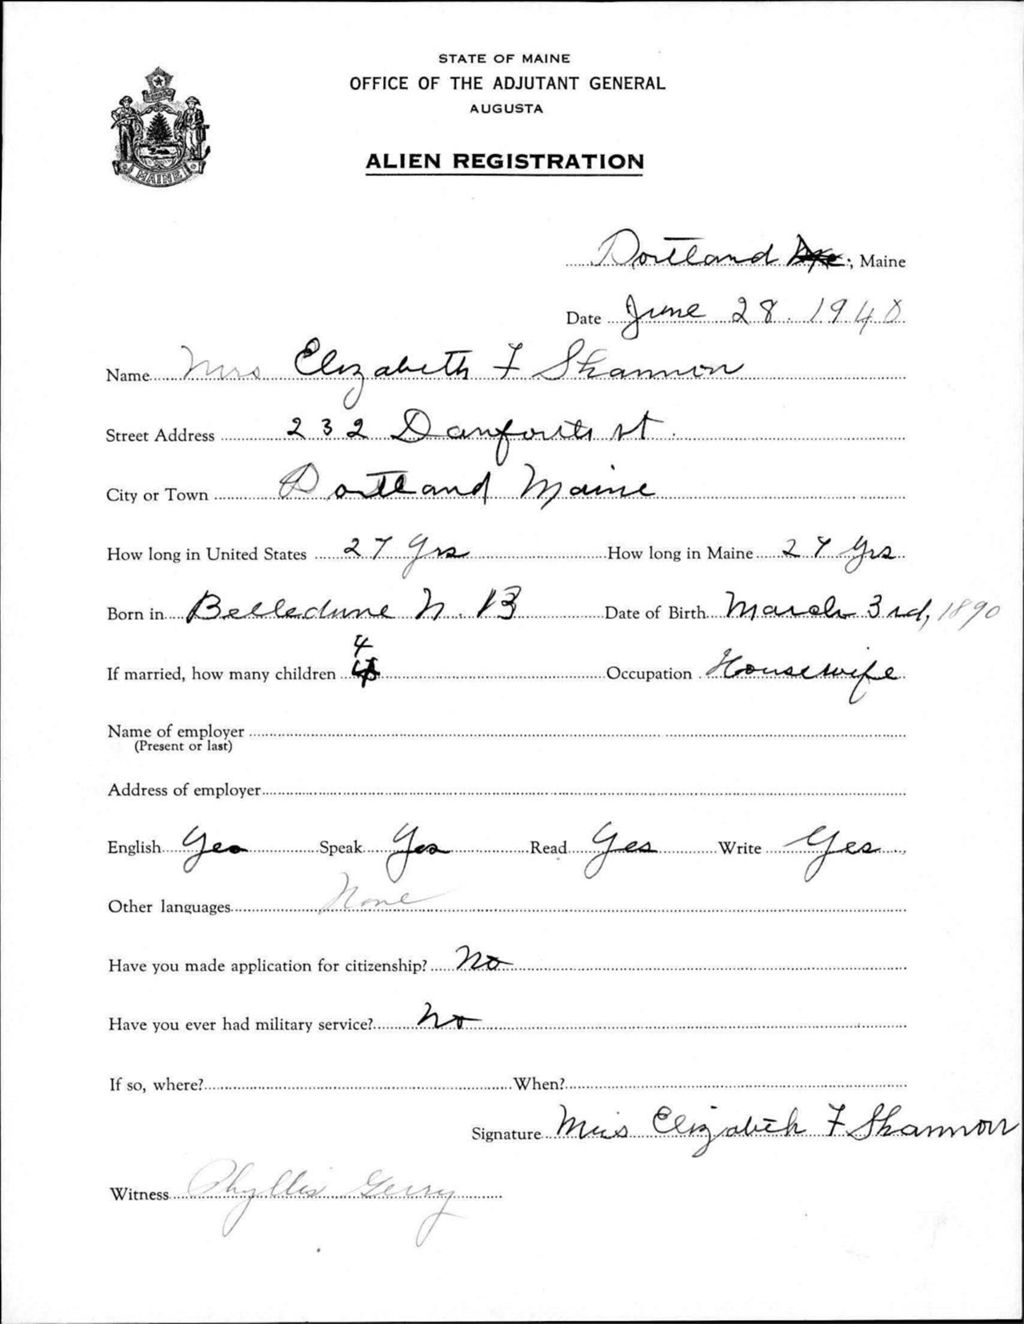 STATE OF MAINE
OFFICE OF THE ADJUTANT GENERAL
AUGUSTA
ALIEN REGISTRATION
MAINE
Portland, Maine
Date June 28. 1940
Name Mrs Elizabeth F Shannon
Street Address 232 Danforth st.
City or Town Portland Maine
How long in United States 27 Yrs How long in Maine 27 Yrs
Born in Belledune N. B Date of Birth March 3rd, 1890
If married, how many children 4 Occupation Housewife
Name of employer
(Present or last)
Address of employer
English Yes Speak Yes Read Yes Write Yes
Other languages None
Have you made application for citizenship? No
Have you ever had military service? No
If so, where? When?
Signature Mrs Elizabeth F Shannon
Witness Phyllis Gerry